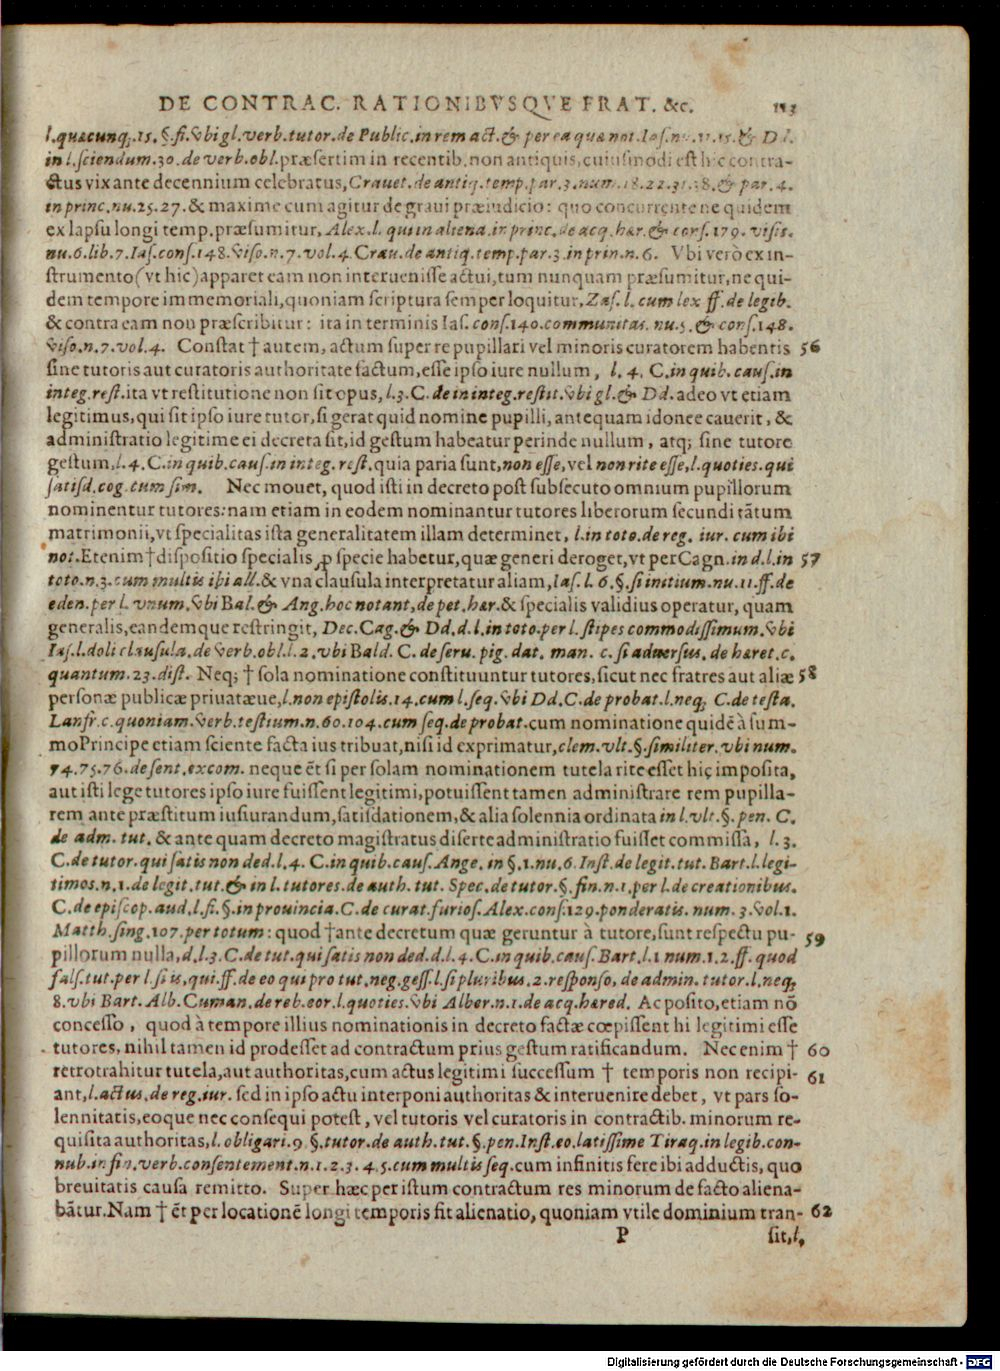 DE CONTRAC. RATIONIBVSQVE FRAT. &c. 113
l.quæcunq;.15. §.fi.vbi gl.verb.tutor.de Public.in rem act.& per ea quæ not. Ias.nu.11.15.& D l.
in l.sciendum.30.de verb.obl.præsertim in recentib.non antiquis, cuiusmodi est hic contra-
ctus vix ante decennium celebratus, Crauet.de antiq.temp.par.3.num.18.22.31.38.& par.4.
in princ.nu.25.27.& maxime cum agitur de graui præiudicio: quo concurrente ne quidem
ex lapsu longi temp.præsumitur, Alex.l.qui in aliena.in princ.de acq.hær.& cons.179. visis.
nu.6.lib.7.Ias.cons.148.viso.n.7.vol.4.Crau.de antiq.temp.par.3.in prin.n.6. Vbi verò ex in-
strumento(vt hic)apparet eam non interuenisse actui,tum nunquam præsumitur,ne qui-
dem tempore immemoriali, quoniam scriptura semper loquitur, Zas.l.cum lex ff.de legib.
& contra eam non præscribitur: ita in terminis Ias.cons.140.communitas. nu.5.& cons.148.
viso.n.7.vol.4. Constat † autem, actum super re pupillari vel minoris curatorem habentis 56
sine tutoris aut curatoris authoritate factum, esse ipso iure nullum, l. 4. C.in quib.caus.in
integ.rest.ita vt restitutione non sit opus, l.3.C.de in integ.restit.vbi gl.& Dd. adeo vt etiam
legitimus, qui sit ipso iure tutor, si gerat quid nomine pupilli, antequam idonee cauerit, &
administratio legitime ei decreta sit, id gestum habeatur perinde nullum, atq; sine tutore
gestum, l.4.C.in quib.caus.in integ.rest.quia paria sunt, non esse, vel non rite esse, l.quoties.qui
satisd.cog.tum sim. Nec mouet, quod isti in decreto post subsecuto omnium pupillorum
nominentur tutores:nam etiam in eodem nominantur tutores liberorum secundi tãtum
matrimonii, vt specialitas ista generalitatem illam determinet, l.in toto.de reg. iur. cum ibi
not.Etenim † dispositio specialis ꝓ specie habetur, quæ generi deroget, vt per Cagn.in d.l.in 57
toto.n.3.cum multis ibi all.& vna clausula interpretatur aliam, Ias.l.6.§.si initium.nu.11.ff.de
eden.per l.vnum.vbi Bal.& Ang.hoc notant, de pet.hær.& specialis validius operatur, quam
generalis, eandemque restringit, Dec.Cag.& Dd.d.l.in toto.per l.stipes commodissimum.vbi
Ias.l.doli clausula.de verb.obl.l.2.vbi Bald. C. de seru. pig. dat. man. c. si aduersus. de hæret.c.
quantum.23.dist. Neq; † sola nominatione constituuntur tutores, sicut nec fratres aut aliæ 58
personæ publicæ priuatæue, l.non epistolis.14.cum l.seq.vbi Dd.C.de probat.l.neq; C.de testa.
Lanfr.c.quoniam.verb.testium.n.60.104.cum seq.de probat.cum nominatione quidẽ à sum-
mo Principe etiam sciente facta ius tribuat, nisi id exprimatur, clem.vlt.§.similiter.vbi num.
74.75.76.de sent.excom. neque ẽt si per solam nominationem tutela rite esset hic imposita,
aut isti lege tutores ipso iure fuissent legitimi, potuissent tamen administrare rem pupilla-
rem ante præstitum iusiurandum, satisdationem, & alia solennia ordinata in l.vlt.§.pen. C.
de adm. tut. & ante quam decreto magistratus diserte administratio fuisset commissa, l. 3.
C.de tutor.qui satis non ded.l.4. C.in quib.caus. Ange. in §.1.nu.6.Inst.de legit.tut. Bart.l.legi-
timos.n.1.de legit.tut.& in l.tutores.de auth. tut. Spec.de tutor.§.fin.n.1.per l.de creationibus.
C.de episcop.aud.l.fi.§.in prouincia.C.de curat.furios.Alex.cons.129.ponderatis. num. 3.vol.1.
Matth.sing.107.per totum: quod † ante decretum quæ geruntur à tutore, sunt respectu pu- 59
pillorum nulla, d.l.3.C.de tut.qui satis non ded.d.l.4.C.in quib.caus.Bart.l.1 num.1.2.ff.quod
fals.tut.per l.si is, qui.ff.de eo qui pro tut.neg.gess.l.si pluribus.2.responso, de admin.tutor.l.neq;
8.vbi Bart. Alb.Cuman.de reb.eor.l.quoties.vbi Alber.n.1.de acq.hæred. Ac posito, etiam nõ
concesso, quod à tempore illius nominationis in decreto factæ cœpissent hi legitimi esse
tutores, nihil tamen id prodesset ad contractum prius gestum ratificandum. Nec enim † 60
retrotrahitur tutela, aut authoritas, cum actus legitimi successum † temporis non recipi- 61
ant, l.actus.de reg.iur. sed in ipso actu interponi authoritas & interuenire debet, vt pars so-
lennitatis, eoque nec consequi potest, vel tutoris vel curatoris in contractib. minorum re-
quisita authoritas, l.obligari.9 §.tutor.de auth.tut.§.pen.Inst.eo.latissime Tiraq.in legib.con-
nub.in fin.verb.consentement.n.1.2.3.4.5.cum multis seq.cum infinitis fere ibi adductis, quo
breuitatis causa remitto. Super hæc per istum contractum res minorum de facto aliena-
bãtur.Nam † ẽt per locationẽ longi temporis fit alienatio, quoniam vtile dominium tran- 62
P sit,l,
Digitalisierung gefördert durch die Deutsche Forschungsgemeinschaft - DFG